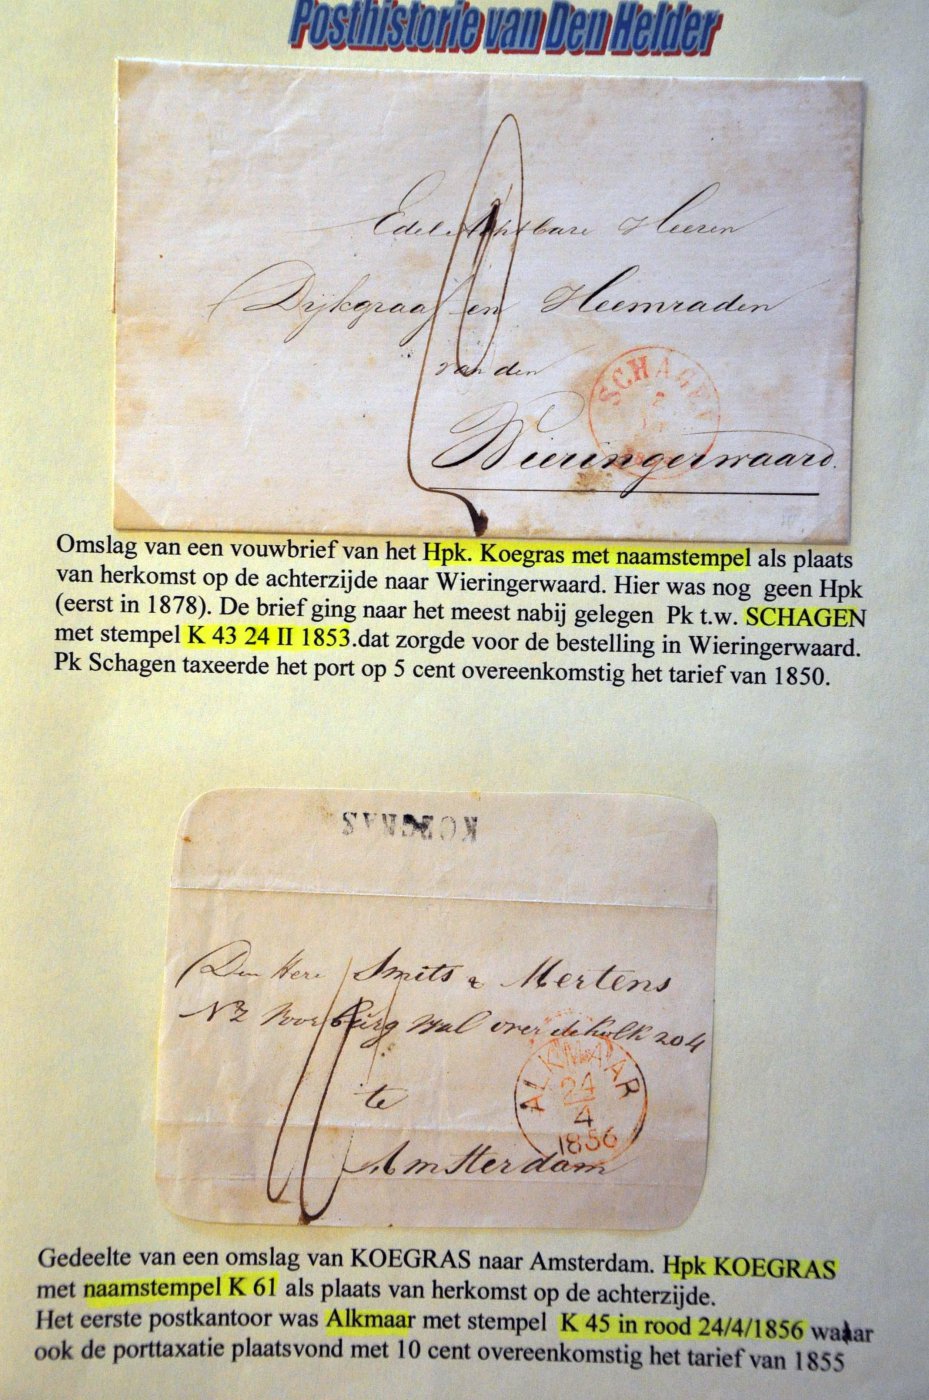 Posthistorie van Den Helder
Edel Achtbare Heeren
Dijkgraaf en Heemraden
van den
SCHAGEN
Wieringerwaard.
Omslag van een vouwbrief van het Hpk. Koegras met naamstempel als plaats
van herkomst op de achterzijde naar Wieringerwaard. Hier was nog geen Hpk
(eerst in 1878). De brief ging naar het meest nabij gelegen Pk t.w. SCHAGEN
met stempel K 43 24 II 1853.dat zorgde voor de bestelling in Wieringerwaard.
Pk Schagen taxeerde het port op 5 cent overeenkomstig het tarief van 1850.
KOEGRAS
Den Here Smits & Mertens
NZ Voorburg wal over de Kolk 204
te
ALKMAAR
24
4
1856
Amsterdam
Gedeelte van een omslag van KOEGRAS naar Amsterdam. Hpk KOEGRAS
met naamstempel K 61 als plaats van herkomst op de achterzijde.
Het eerste postkantoor was Alkmaar met stempel K 45 in rood 24/4/1856 waaar
ook de porttaxatie plaatsvond met 10 cent overeenkomstig het tarief van 1855